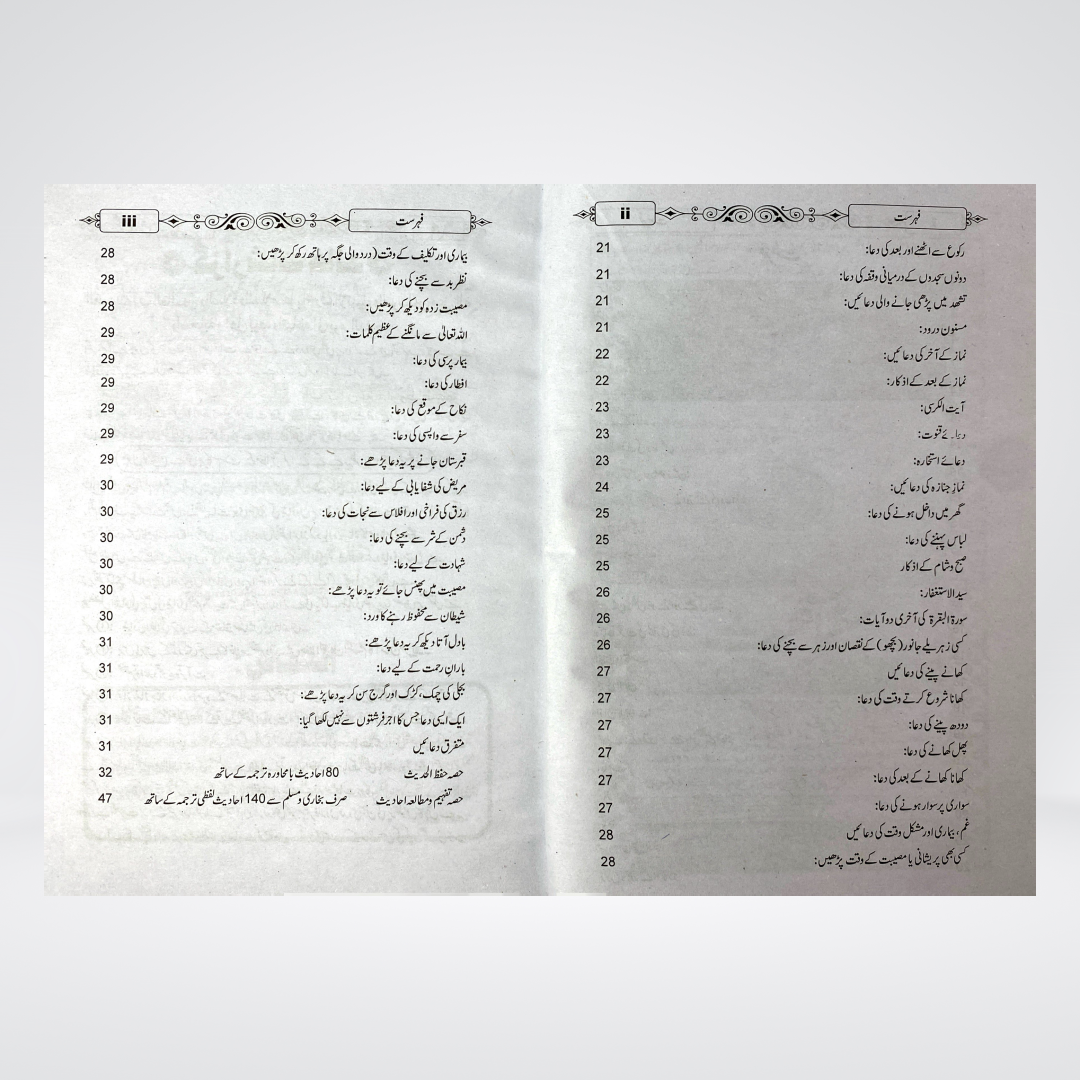 فہرست ii
رکوع سے اٹھنے اور بعد کی دعا: 21
دونوں سجدوں کے درمیانی وقفہ کی دعا: 21
تشھد میں پڑھی جانے والی دعائیں: 21
مسنون درود: 21
نماز کے آخر کی دعائیں: 22
نماز کے بعد کے اذکار: 22
آیت الکرسی: 23
دعائے قنوت: 23
دعائے استخارہ: 23
نماز جنازہ کی دعائیں: 24
گھر میں داخل ہونے کی دعا: 25
لباس پہننے کی دعا: 25
صبح و شام کے اذکار 25
سید الاستغفار: 26
سورۃ البقرۃ کی آخری دو آیات: 26
کسی زہریلے جانور (بچھو) کے نقصان اور زہر سے بچنے کی دعا: 26
کھانے پینے کی دعائیں 27
کھانا شروع کرتے وقت کی دعا: 27
دودھ پینے کی دعا: 27
پھل کھانے کی دعا: 27
کھانا کھانے کے بعد کی دعا: 27
سواری پر سوار ہونے کی دعا: 27
غم، بیماری اور مشکل وقت کی دعائیں 28
کسی بھی پریشانی یا مصیبت کے وقت پڑھیں: 28
فہرست iii
بیماری اور تکلیف کے وقت (درد والی جگہ پر ہاتھ رکھ کر پڑھیں: 28
نظر بد سے بچنے کی دعا: 28
مصیبت زدہ کو دیکھ کر پڑھیں: 28
اللہ تعالیٰ سے مانگنے کے عظیم کلمات: 29
بیمار پرسی کی دعا: 29
افطار کی دعا: 29
نکاح کے موقع کی دعا: 29
سفر سے واپسی کی دعا: 29
قبرستان جانے پر یہ دعا پڑھے: 29
مریض کی شفا یابی کے لیے دعا: 30
رزق کی فراخی اور افلاس سے نجات کی دعا: 30
دشمن کے شر سے بچنے کی دعا: 30
شہادت کے لیے دعا: 30
مصیبت میں پھنس جائے تو یہ دعا پڑھے: 30
شیطان سے محفوظ رہنے کا ورد: 30
بادل آتا دیکھ کر یہ دعا پڑھے: 31
باران رحمت کے لیے دعا: 31
بجلی کی چمک، کڑک اور گرج سن کر یہ دعا پڑھے: 31
ایک ایسی دعا جس کا اجر فرشتوں سے نہیں لکھا گیا: 31
متفرق دعائیں 31
حصہ حفظ الحدیث 80 احادیث با محاورہ ترجمہ کے ساتھ 32
حصہ تفہیم و مطالعہ احادیث صرف بخاری و مسلم سے 140 احادیث لفظی ترجمہ کے ساتھ 47